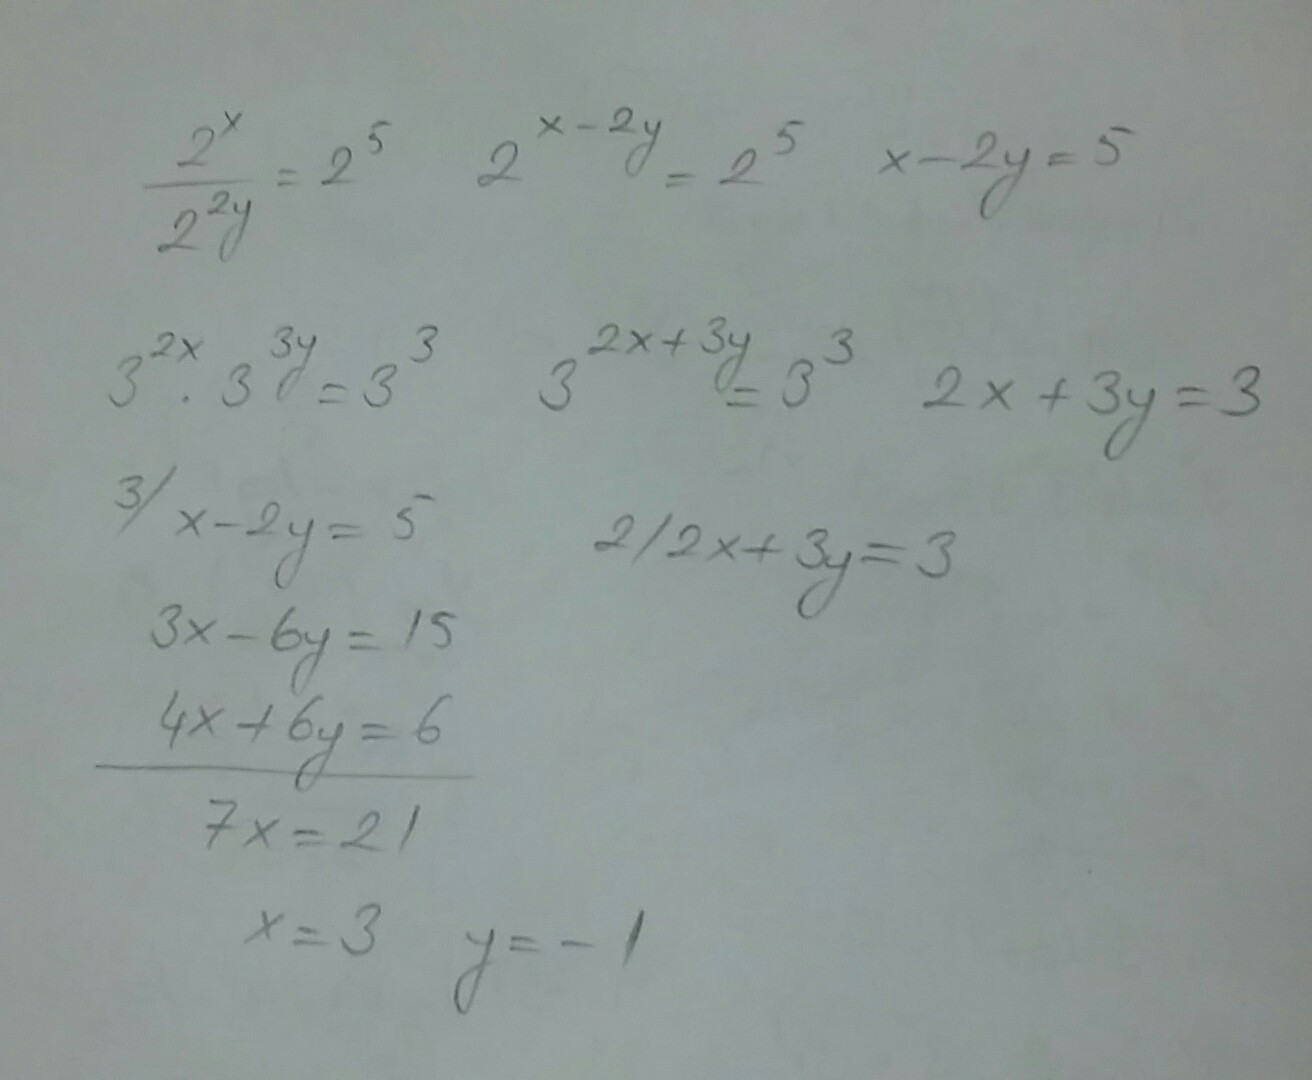 2^x / 2^2y = 2^5 2^x-2y = 2^5 x-2y=5
3^2x · 3^3y = 3^3 3^2x+3y = 3^3 2x+3y=3
3/ x-2y=5 2/2x+3y=3
3x-6y=15
4x+6y=6
7x=21
x=3 y=-1